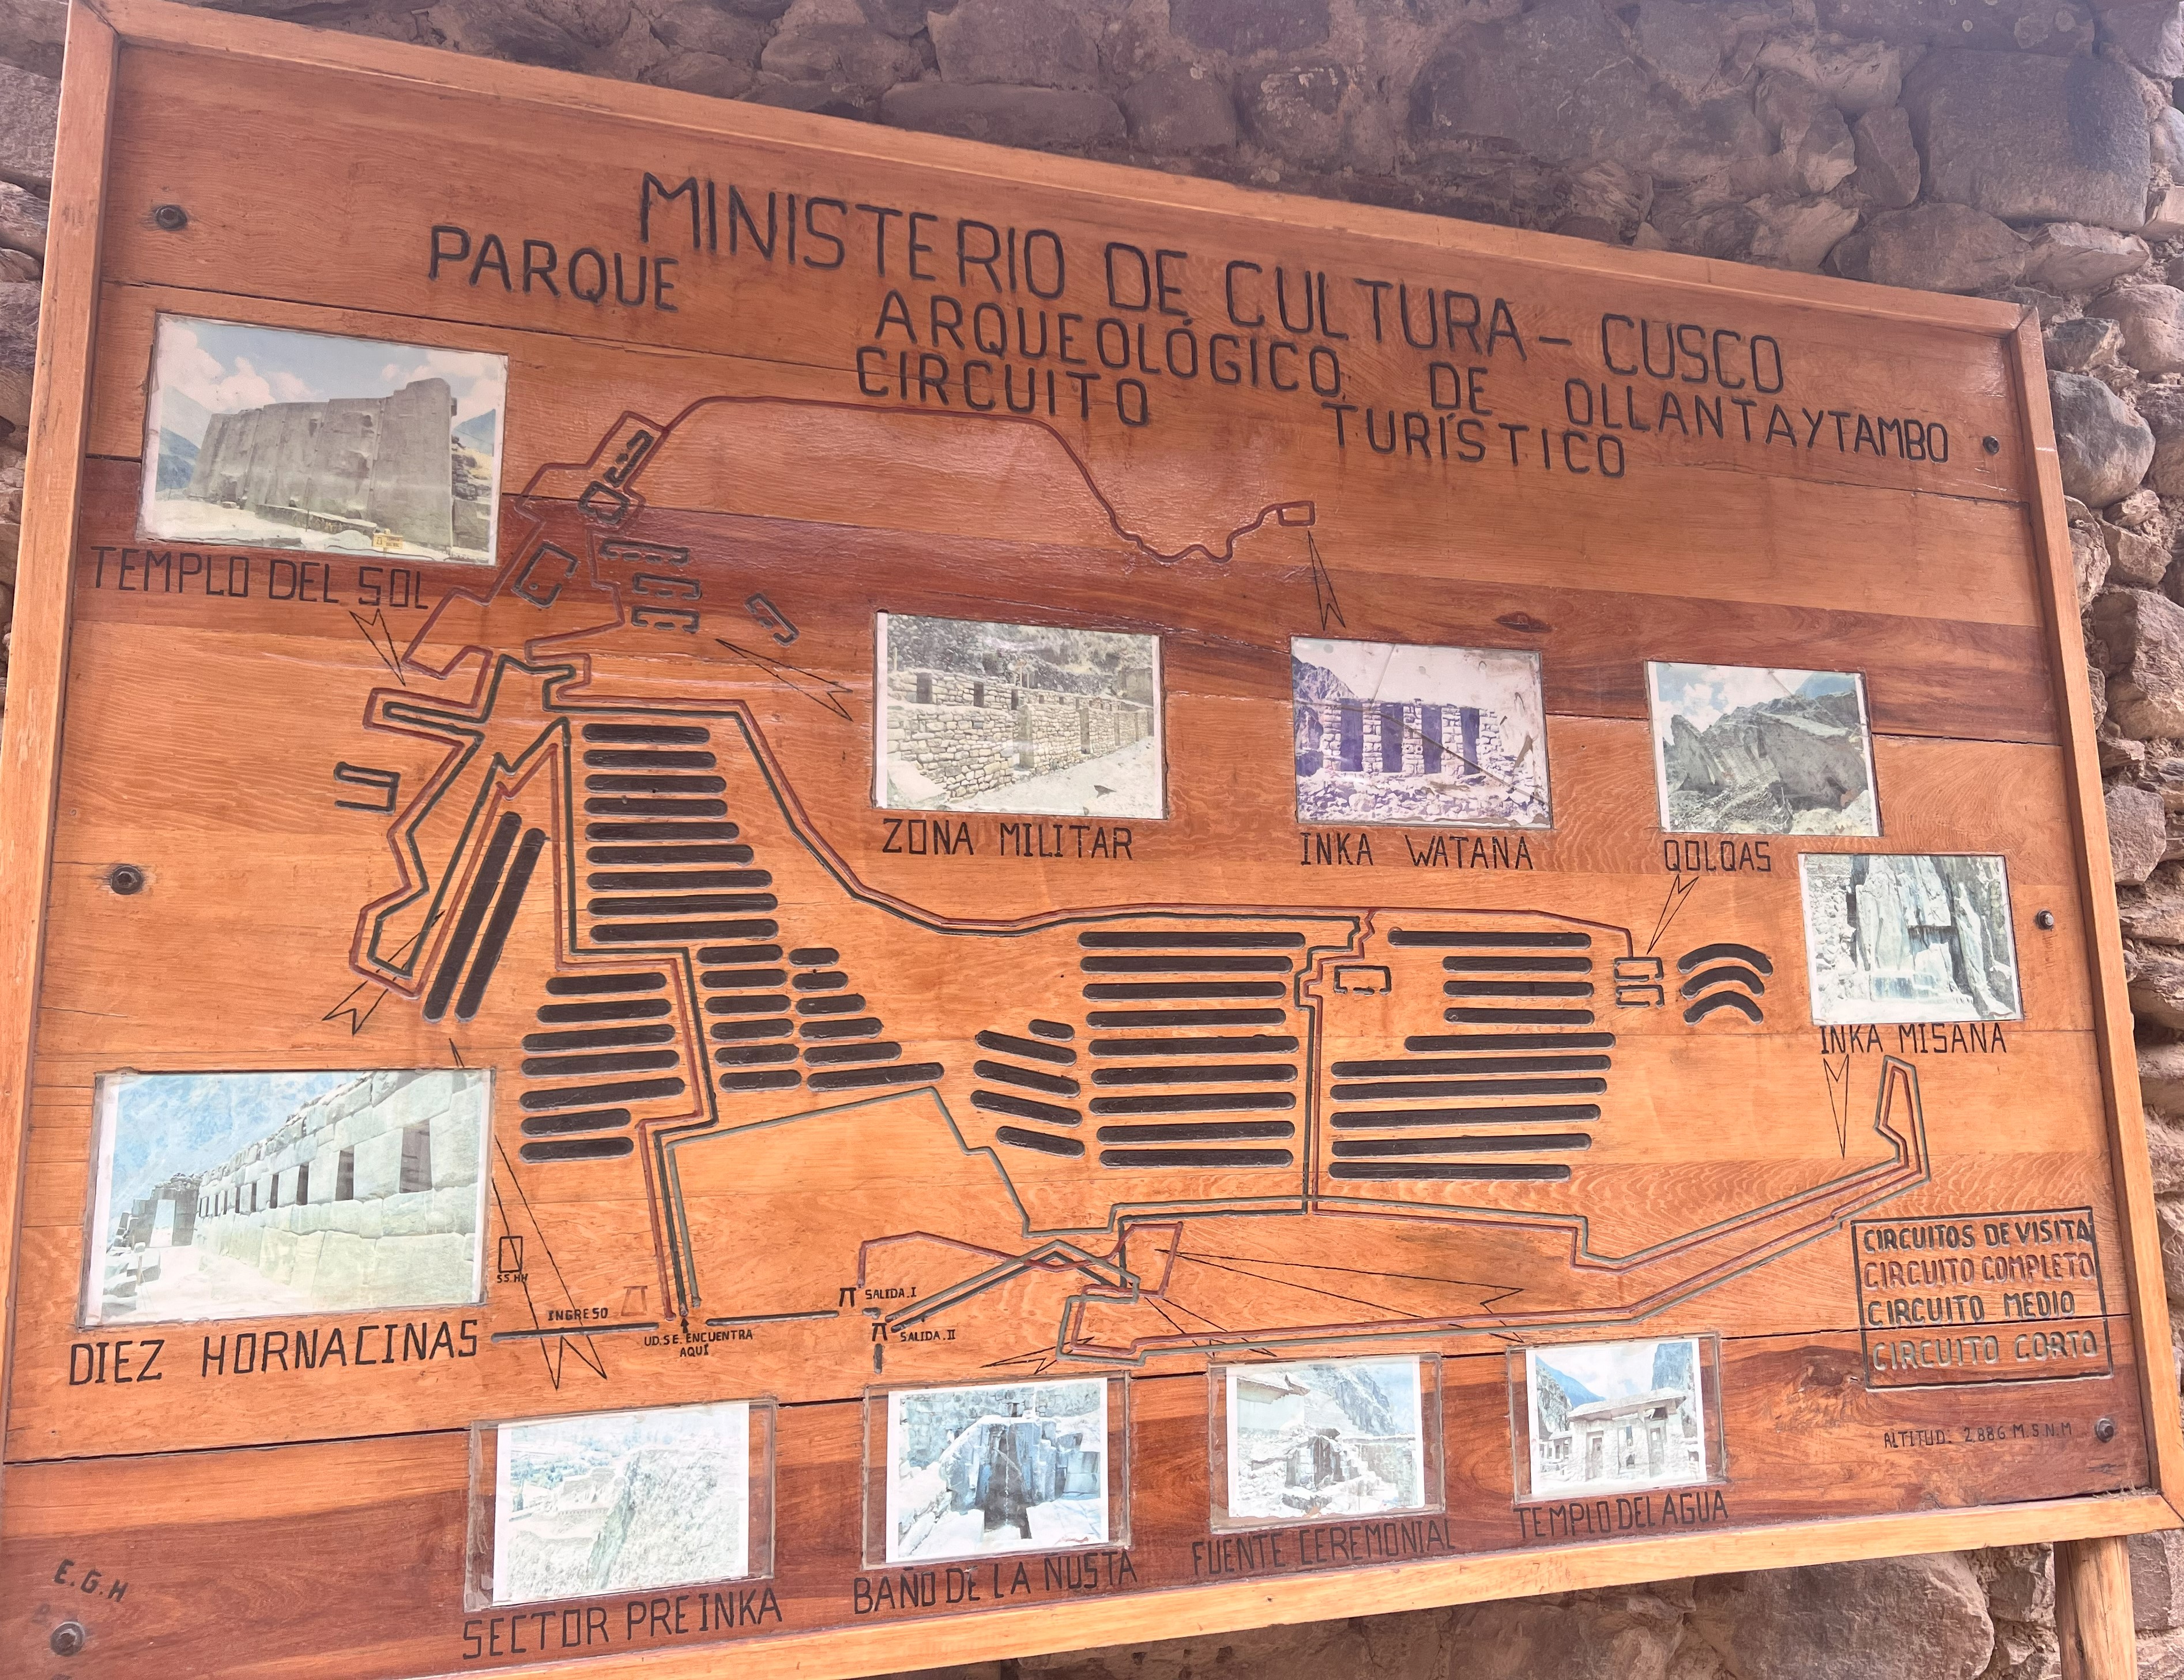 MINISTERIO DE CULTURA - CUSCO
PARQUE ARQUEOLÓGICO DE OLLANTAYTAMBO
CIRCUITO TURÍSTICO
TEMPLO DEL SOL
ZONA MILITAR
INKA WATANA
QOLQAS
INKA MISANA
DIEZ HORNACINAS
SS.HH
INGRESO
UD.SE.ENCUENTRA
AQUÍ
SALIDA.I
SALIDA.II
CIRCUITOS DE VISITA
CIRCUITO COMPLETO
CIRCUITO MEDIO
CIRCUITO CORTO
ALTITUD: 2886 M.S.N.M
SECTOR PREINKA
BAÑO DE LA NUSTA
FUENTE CEREMONIAL
TEMPLO DEL AGUA
E.G.H